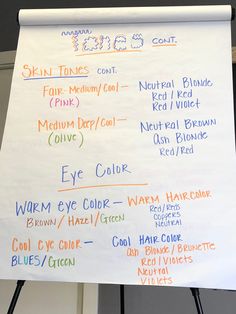 Tones CONT.
SKIN TONES CONT.
Fair-Medium/Cool - Neutral Blonde
(PINK) Red/Red
Red/Violet
Medium Deep/Cool - Neutral Brown
(OLIVE) Ash Blonde
Red/Red
Eye Color
WARM eye COLOR - WARM HAIR COLOR
BROWN/HAZEL/GREEN Red/Reds
Coppers
Neutral
Cool eye Color - Cool HAIR COLOR
BLUES/GREEN Ash Blonde/BRUNETTE
Red/Violets
Neutral
Violets